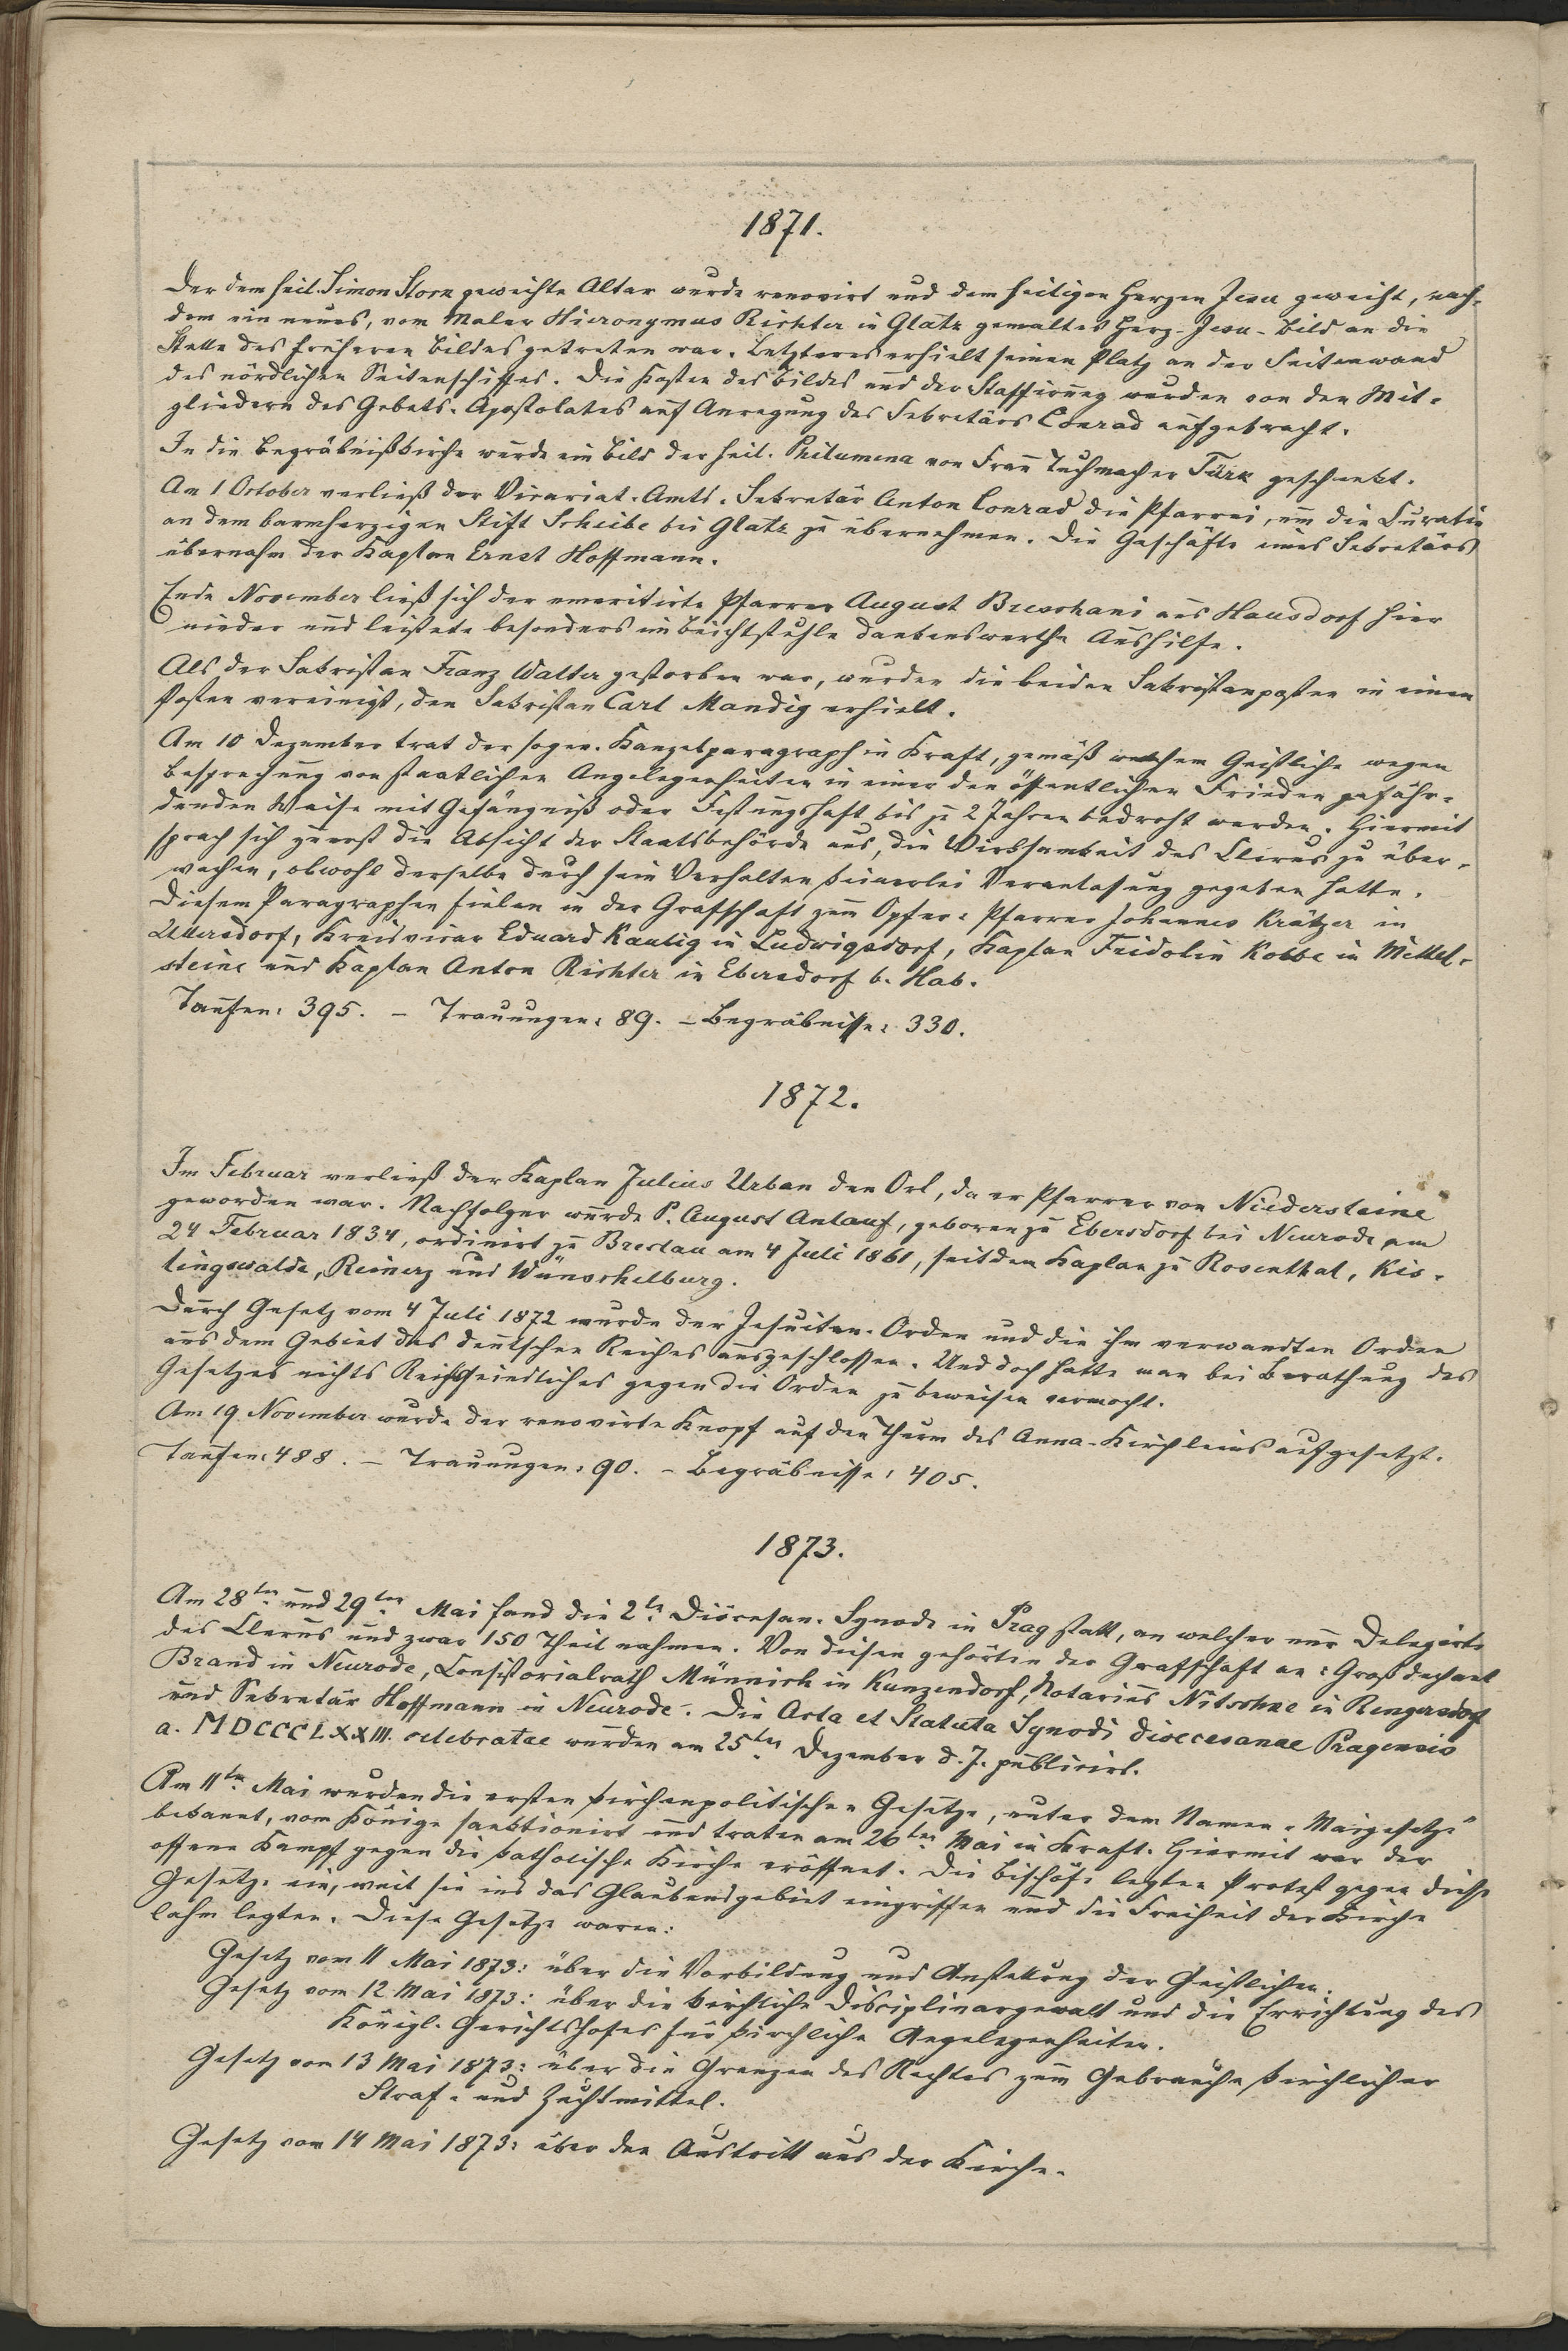 1871.
Der dem heil. Simon Stock geweihte Altar wurde renovirt und dem heiligen Herzen Jesu geweiht, nach-
dem ein neues, vom Maler Hieronymus Richter in Glatz gemaltes Herz-Jesu-Bild an die
Stelle des früheren Bildes getreten war. Letzteres erhielt seinen Platz an der Seitenwand
des nördlichen Seitenschiffes. Die Kosten des Bildes und der Staffirung wurden von den Mit-
gliedern des Gebets-Apostolates auf Anregung des Sekretärs Conrad aufgebracht.
In die Begräbnißkirche wurde ein Bild der heil. Philumena von Frau Tuchmacher Türk geschenkt.
Am 1 October verließ der Vicariat-Amts-Sekretär Anton Conrad die Pfarrei, um die Curatie
an dem barmherzigen Stift Scheibe bei Glatz zu übernehmen. Die Geschäfte eines Sekretärs
übernahm der Kaplan Ernst Hoffmann.
Ende November ließ sich der emeritirte Pfarrer August Breschani aus Hausdorf hier
nieder und leistete besonders im Beichtstuhle dankenswerthe Aushilfe.
Als der Sakristan Franz Walter gestorben war, wurden die beiden Sakristanposten in einen
Posten vereinigt, den Sakristan Carl Mandig erhielt.
Am 10 Dezember trat der sogen. Kanzelparagraph in Kraft, gemäß welchem Geistliche wegen
Besprechung von staatlichen Angelegenheiten in einer den öffentlichen Frieden gefähr-
denden Weise mit Gefängniß oder Festungshaft bis zu 2 Jahren bedroht werden. Hiermit
sprach sich zuerst die Absicht der Staatsbehörde aus, die Wirksamkeit des Clerus zu über-
wachen, obwohl derselbe durch sein Verhalten keinerlei Veranlasung gegeben hatte.
Diesem Paragraphen fielen in der Grafschaft zum Opfer: Pfarrer Johannes Krätzer in
Ullersdorf, Kreisvicar Eduard Kautig in Ludwigsdorf, Kaplan Fridolin Kobbe in Mittel-
steine und Kaplan Anton Richter in Ebersdorf b. Hab.
Taufen: 395. – Trauungen: 89. – Begräbnisse: 330.
1872.
Im Februar verließ der Kaplan Julius Urban den Ort, da er Pfarrer von Niedersteine
geworden war. Nachfolger wurde P. August Anlauf, geboren zu Ebersdorf bei Neurode am
24 Februar 1834, ordinirt zu Breslau am 4 Juli 1861, seitdem Kaplan zu Rosenthal, Kis-
lingswalde, Reinerz und Wünschelburg.
Durch Gesetz vom 4 Juli 1872 wurde der Jesuiten-Orden und die ihm verwandten Orden
aus dem Gebiet des deutschen Reiches ausgeschlossen. Und doch hatte man bei Berathung des
Gesetzes nichts Reichsfeindliches gegen die Orden zu beweisen vermocht.
Am 19 November wurde der renovirte Knopf auf den Thurm des Anna-Kirchleins aufgesetzt.
Taufen: 488. – Trauungen: 90. – Begräbnisse: 405.
1873.
Am 28ten und 29ten Mai fand die 2te Diöcesan-Synode in Prag statt, an welcher nur Delegirte
des Clerus und zwar 150 Theil nahmen. Von diesen gehörten der Grafschaft an: Großdechant
Brand in Neurode, Consistorialrath Münnich in Kunzendorf, Notarius Nitschne in Rengersdorf
und Sekretär Hoffmann in Neurode. Die Acta et Statuta Synodi dioecesanae Pragensis
a. MDCCCLXXIII. celebratae wurden am 25ten Dezember d. J. publicirt.
Am 11ten Mai wurden die ersten kirchenpolitischen Gesetze, unter dem Namen „Maigesetze"
bekannt, vom Könige sanktionirt und traten am 26ten Mai in Kraft. Hiermit war der
offene Kampf gegen die katholische Kirche eröffnet. Die Bischöfe legten Protest gegen diese
Gesetze ein, weil sie ins das Glaubensgebiet eingriffen und die Freiheit der Kirche
lahm legten. Diese Gesetze waren:
Gesetz vom 11 Mai 1873: über die Vorbildung und Anstellung der Geistlichen.
Gesetz vom 12 Mai 1873: über die kirchliche Disciplinargewalt und die Errichtung des
Königl. Gerichtshofes für kirchliche Angelegenheiten.
Gesetz vom 13 Mai 1873: über die Grenzen des Rechtes zum Gebrauche kirchlicher
Straf- und Zuchtmittel.
Gesetz vom 14 Mai 1873: über den Austritt aus der Kirche.